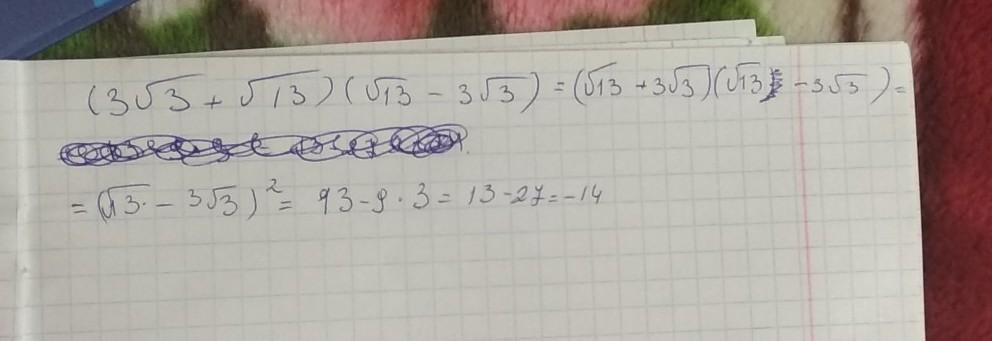 (3√3 + √13)(√13 - 3√3) = (√13 + 3√3)(√13 - 3√3) =
= (√13 - 3√3)² = 13 - 9 · 3 = 13 - 27 = -14